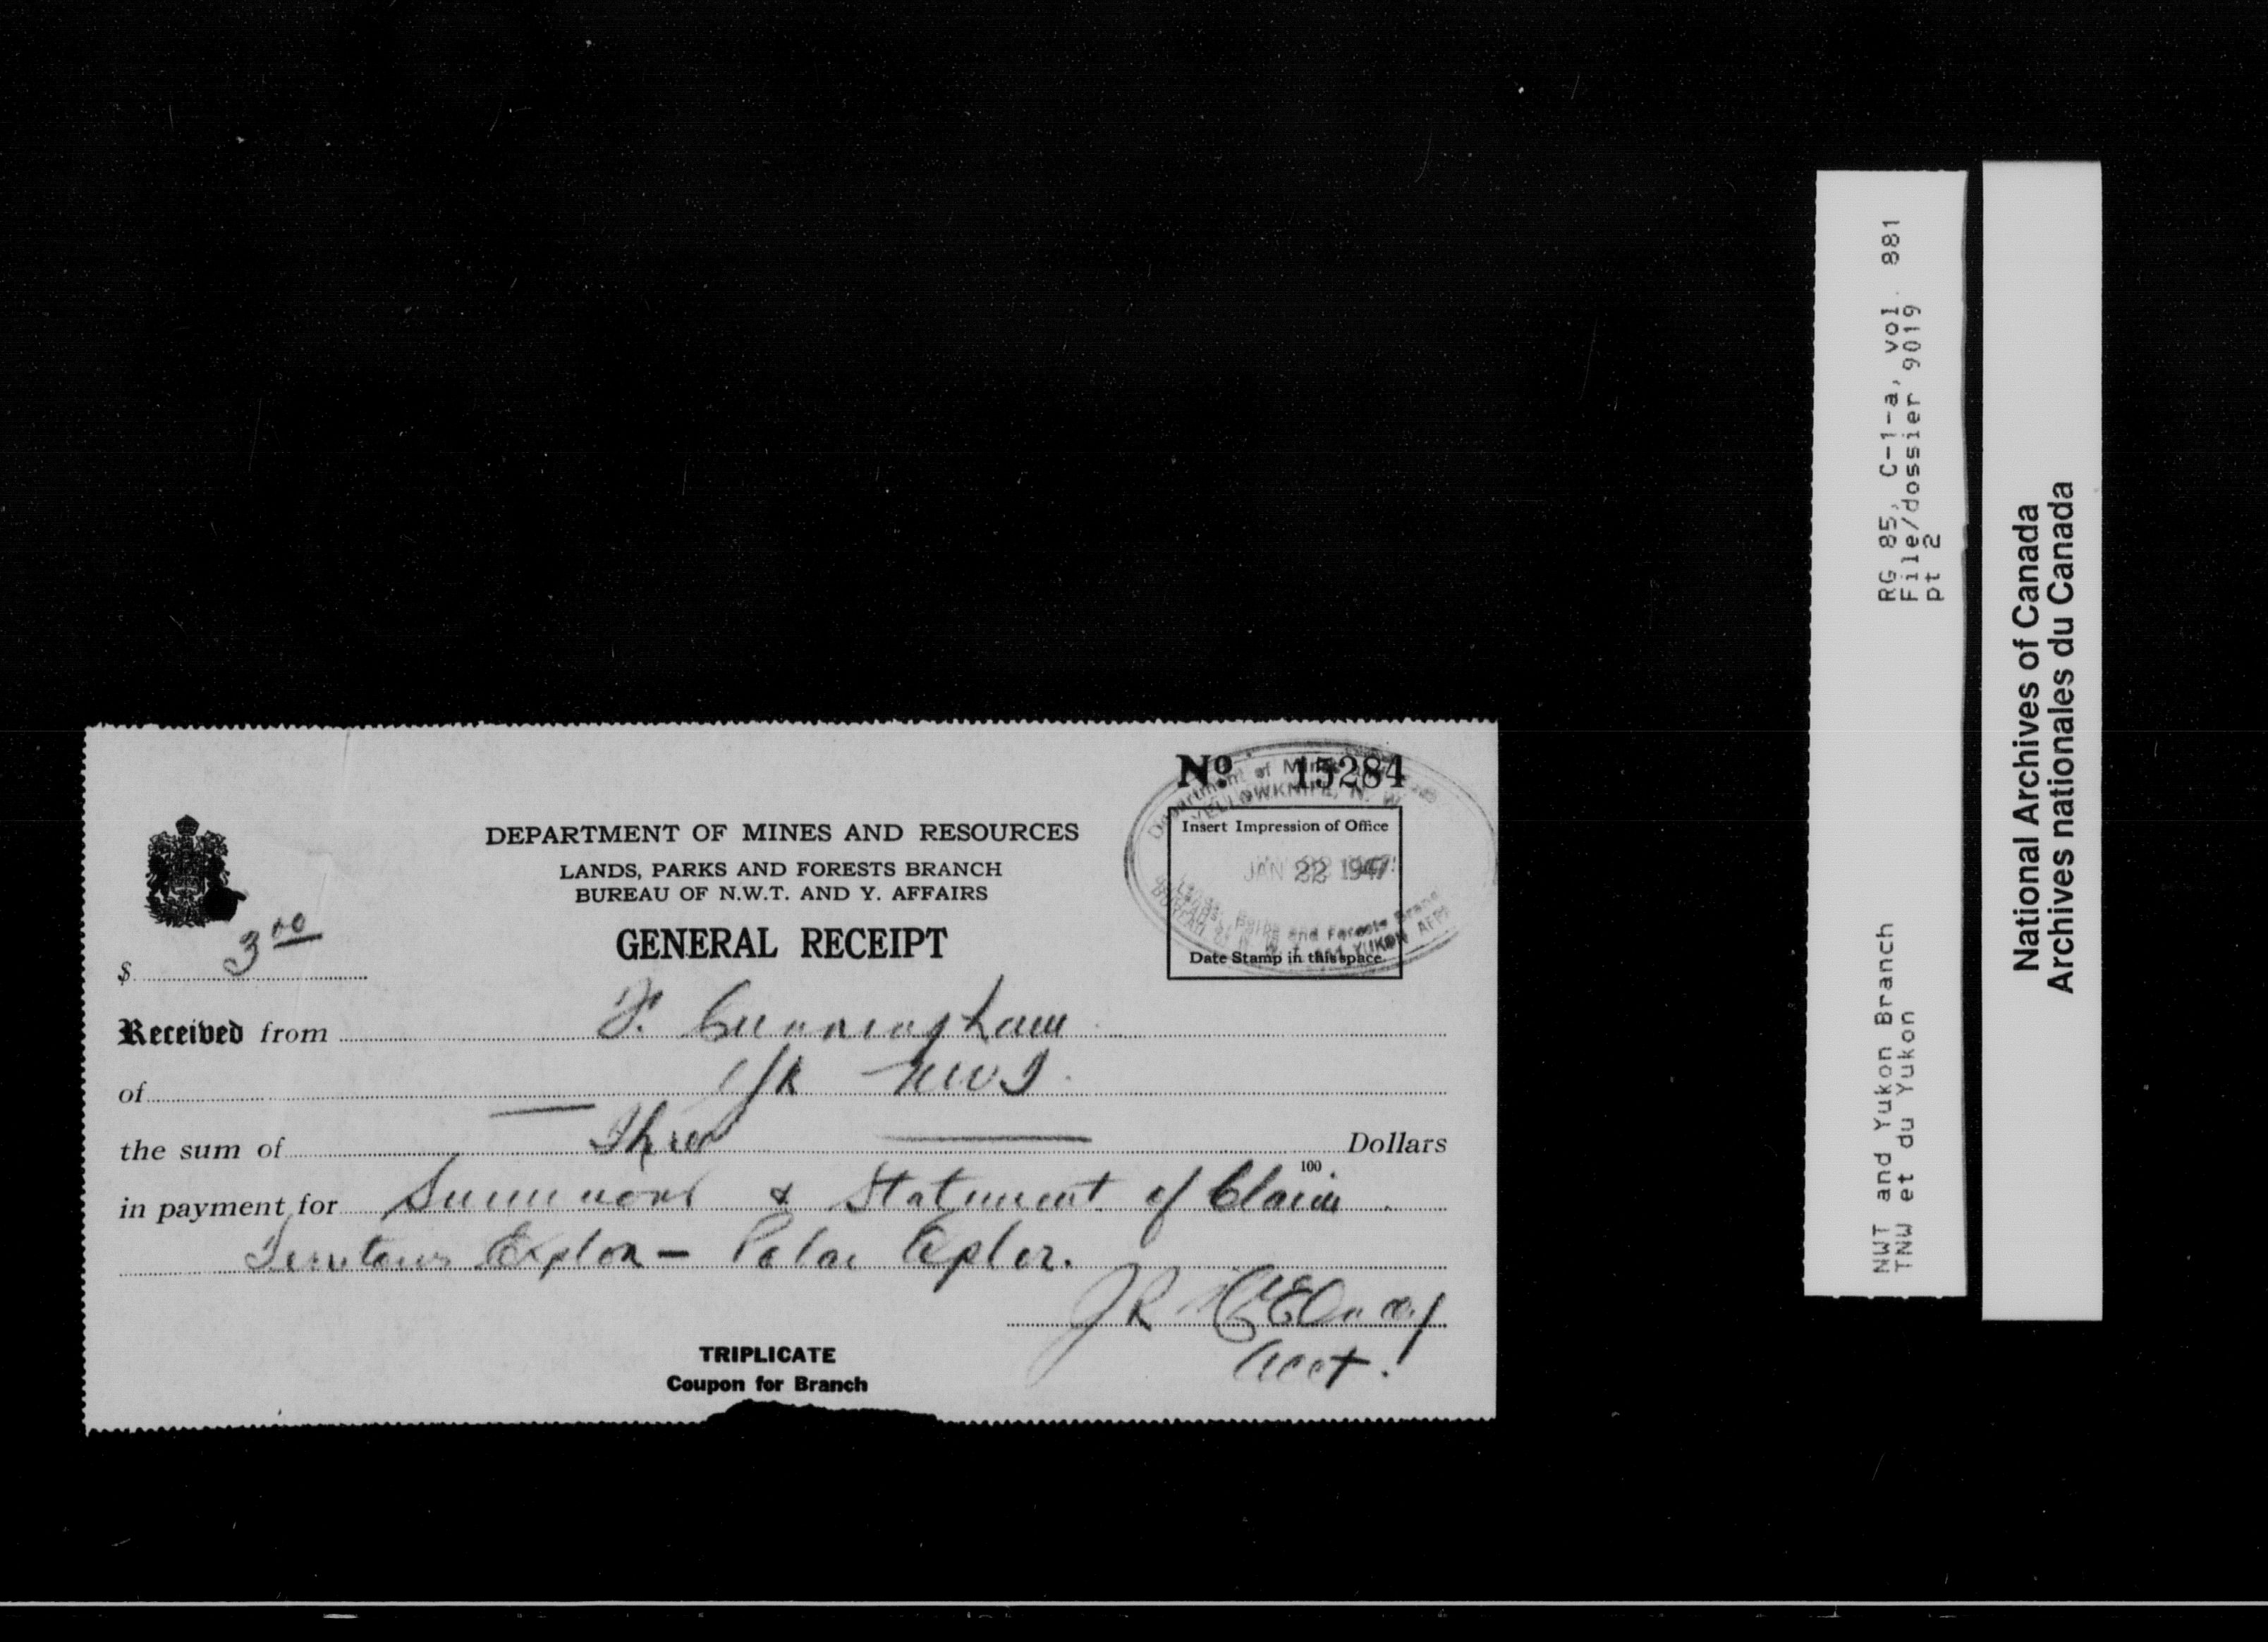 No 15284
DEPARTMENT OF MINES AND RESOURCES
LANDS, PARKS AND FORESTS BRANCH
BUREAU OF N.W.T. AND Y. AFFAIRS
GENERAL RECEIPT
Insert Impression of Office
JAN 22 1947
Date Stamp in this space.
Department of Mines
YELLOWKNIFE, N. W.
Lands, Parks and Forests
BUREAU of N. W. T. and YUKON
$ 3 00
Received from F. Cunningham
of YK NWT.
the sum of Three Dollars
100
in payment for Summons & Statement of Claim.
Explor.
J R
Acct.
TRIPLICATE
Coupon for Branch
RG 85, C-1-a, vol. 881
File/dossier 9019
pt 2
NWT and Yukon Branch
TNW et du Yukon
National Archives of Canada
Archives nationales du Canada